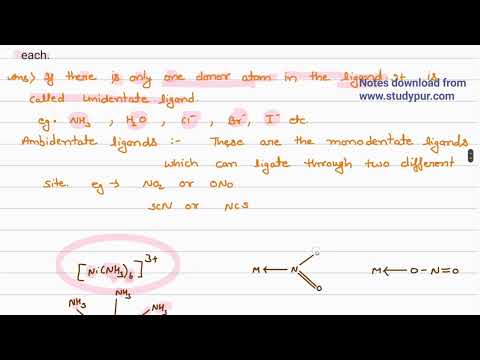 each.
Ans> If there is only one donor atom in the ligand it is
called Unidentate ligand.
Notes download from
www.studypur.com
eg. NH3 , H2O , Cl- , Br- , I- etc
Ambidentate ligands :- These are the monodentate ligands
which can ligate through two different
site. eg → NO2 or ONO
SCN or NCS
[Ni(NH3)6]3+
M ← N O O
M ← O-N=O
NH3
NH3 NH3